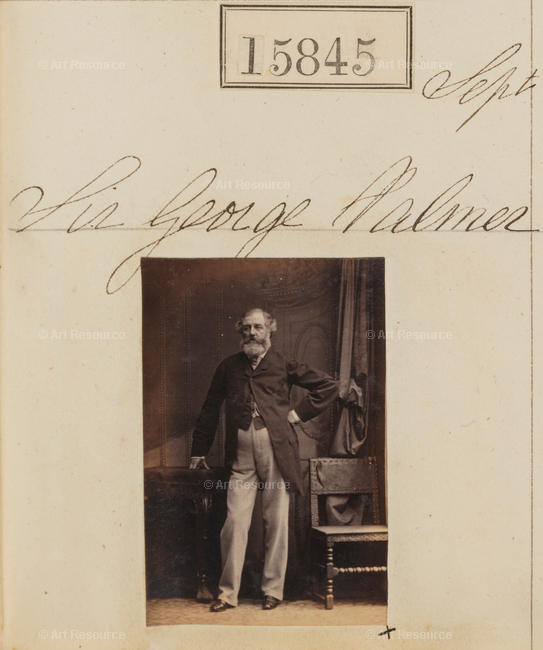 15845
Sept
Sir George Palmer
© Art Resource
© Art Resource
© Art Resource
© Art Resource
© Art Resource
© Art Resource
© Art Resource
© Art Resource